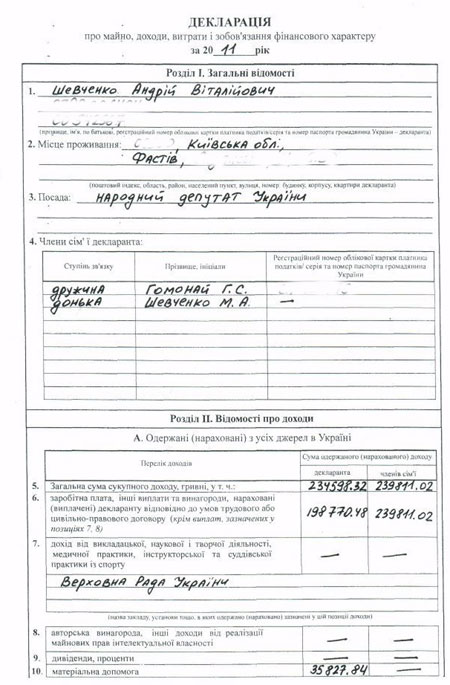 ДЕКЛАРАЦІЯ
про майно, доходи, витрати і зобов'язання фінансового характеру
за 2011 рік
Розділ I. Загальні відомості
1. Шевченко Андрій Віталійович
(прізвище, ім'я, по батькові, реєстраційний номер облікової картки платника податків/серія та номер паспорта громадянина України – декларанта)
2. Місце проживання: Київська обл.,
Фастів,
(поштовий індекс, область, район, населений пункт, вулиця, номер будинку, корпусу, квартири декларанта)
3. Посада: народний депутат України
4. Члени сім'ї декларанта:
Ступінь зв'язку
Прізвище, ініціали
Реєстраційний номер облікової картки платника
податків/ серія та номер паспорта громадянина
України
дружина Гомонай Г.С.
донька Шевченко М.А. —
Розділ II. Відомості про доходи
А. Одержані (нараховані) з усіх джерел в Україні
Перелік доходів
Сума одержаного (нарахованого) доходу
декларанта членів сім'ї
5. Загальна сума сукупного доходу, гривні, у т. ч.: 234598.32 239811.02
6. заробітна плата, інші виплати та винагороди, нараховані
(виплачені) декларанту відповідно до умов трудового або
цивільно-правового договору (крім виплат, зазначених у
позиціях 7, 8)
198770.48 239811.02
7. дохід від викладацької, наукової і творчої діяльності,
медичної практики, інструкторської та суддівської
практики із спорту
— —
Верховна Рада України
(назва закладу, установи тощо, в яких одержано (нараховано) зазначені у цій позиції доходи)
8. авторська винагорода, інші доходи від реалізації
майнових прав інтелектуальної власності
— —
9. дивіденди, проценти — —
10. матеріальна допомога 35827.84 —